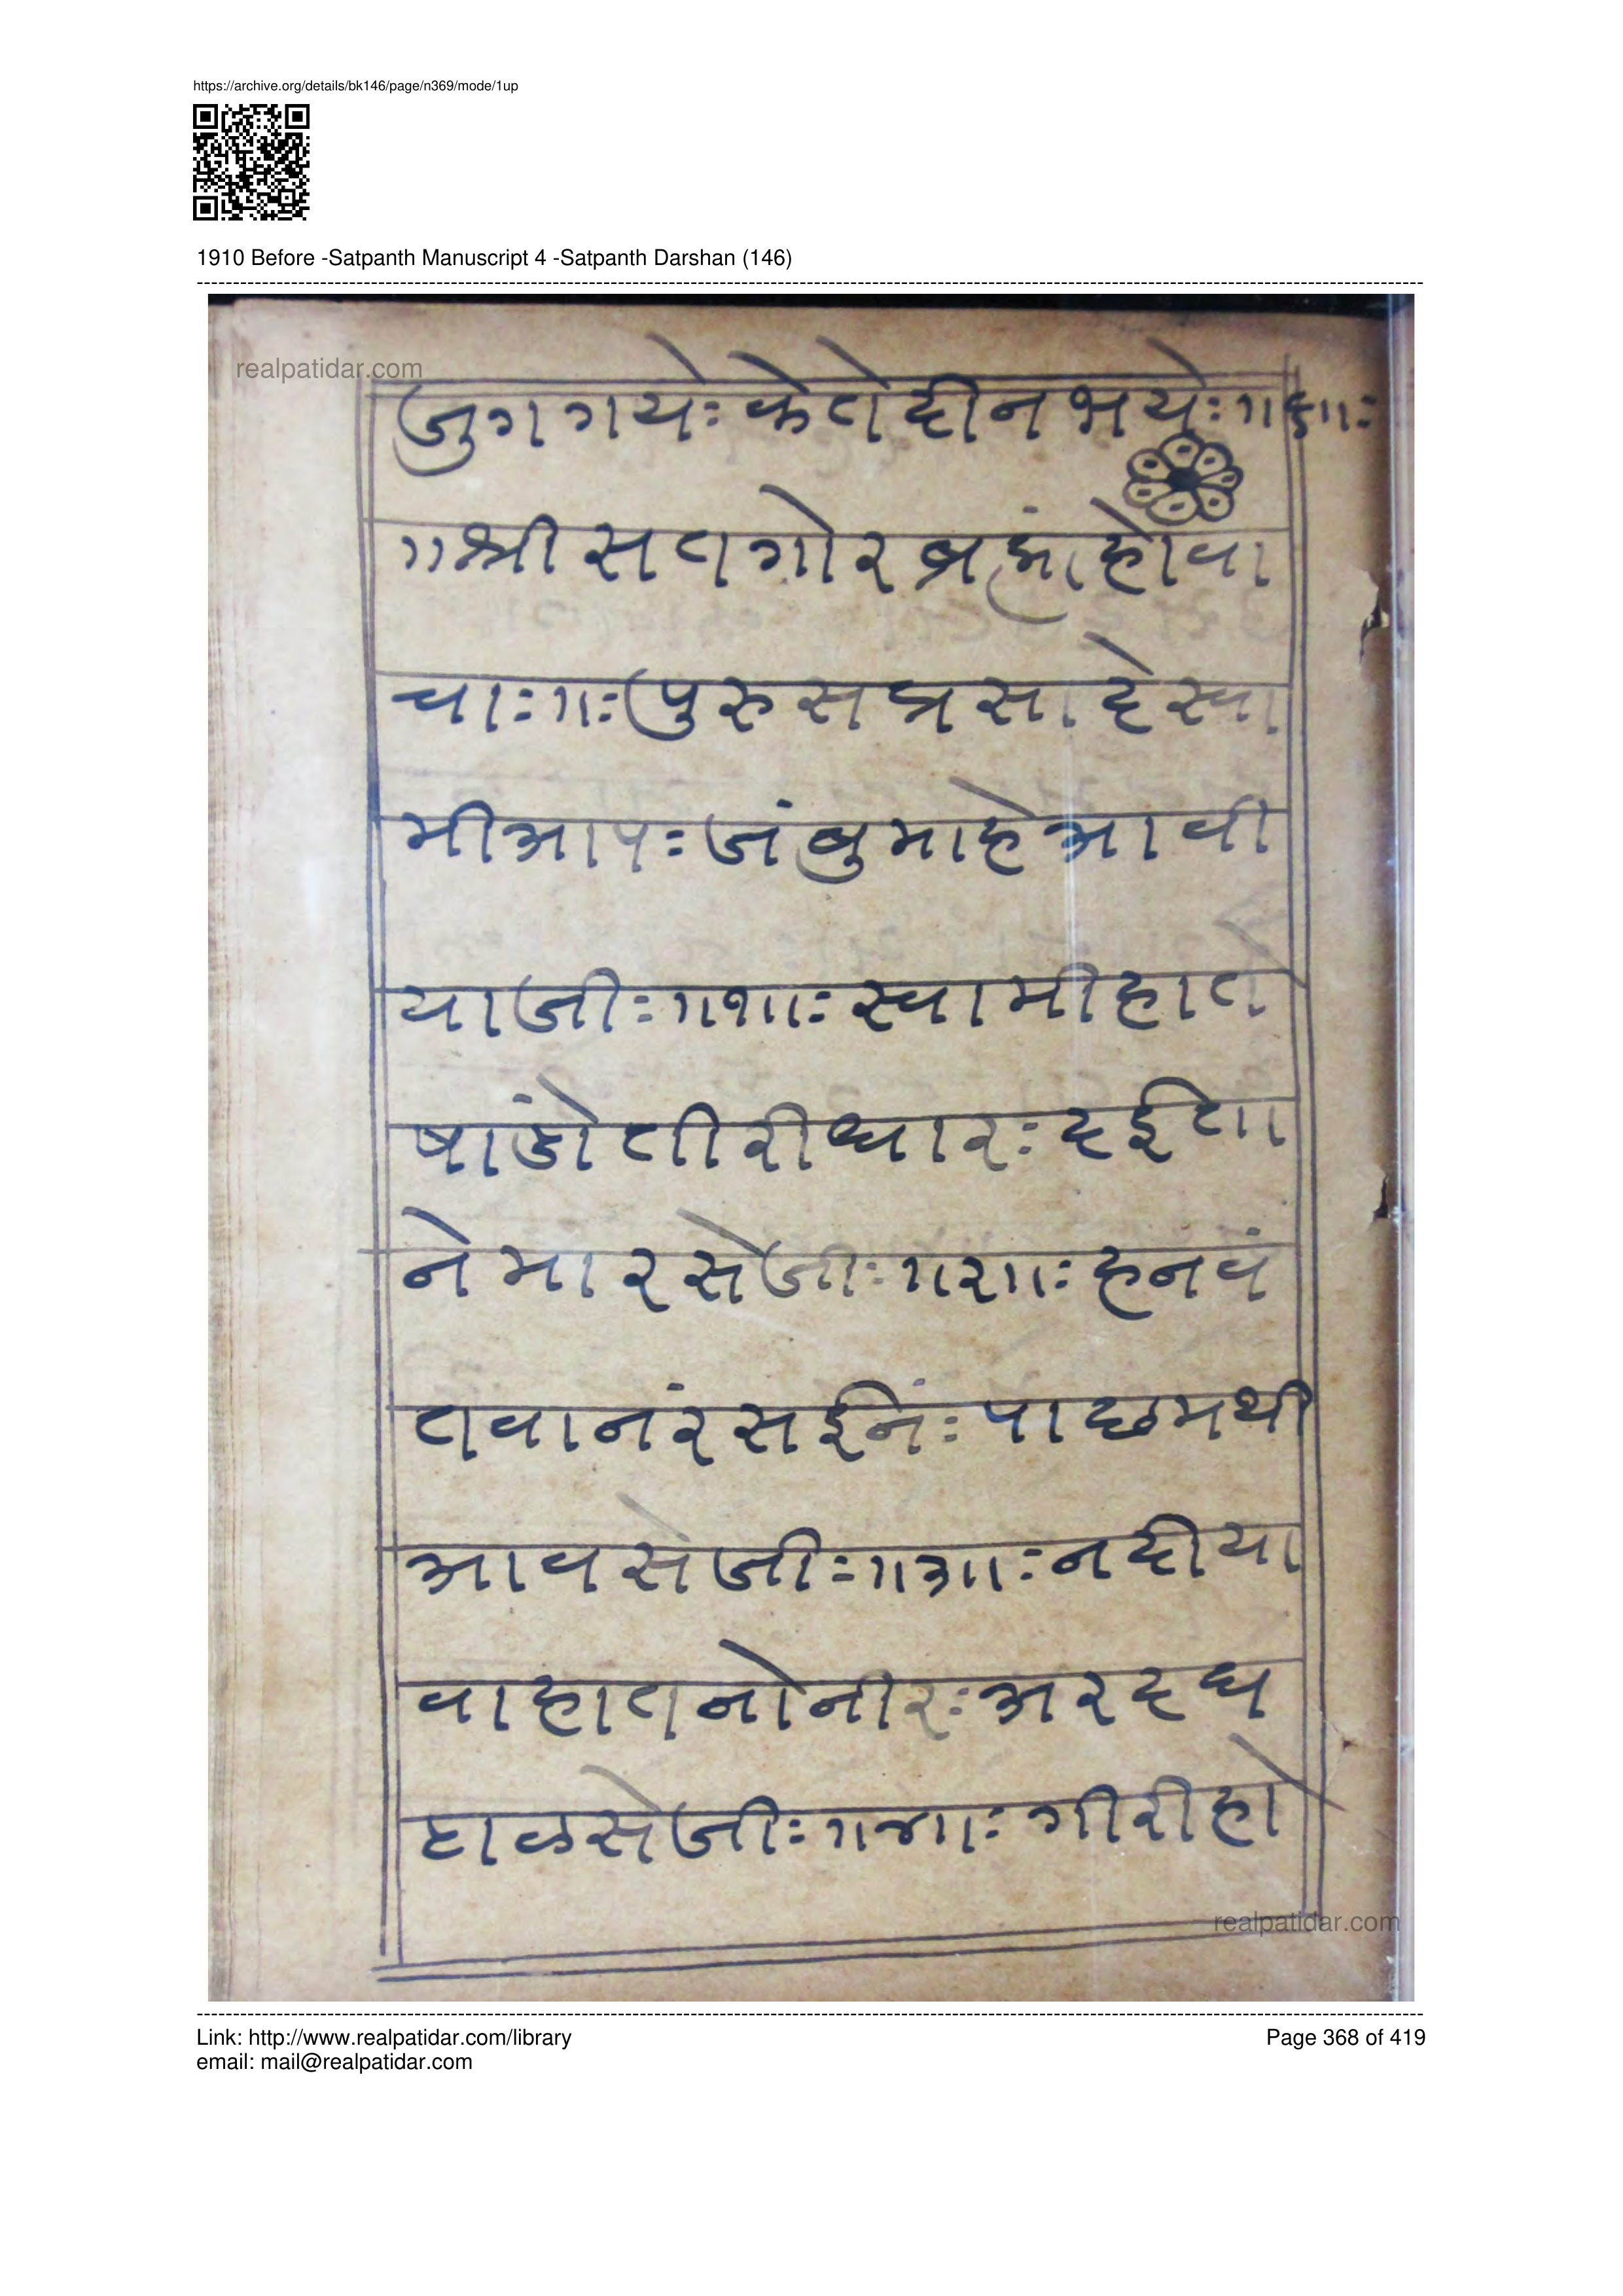 https://archive.org/details/bk146/page/n369/mode/1up
1910 Before -Satpanth Manuscript 4 -Satpanth Darshan (146)
realpatidar.com
जुगगयेः केतेदीनभयेः
॥श्रीसतगोरब्रह्मांहोवा
चाः॥ः पुरुसप्रसादेस्वा
मीआपः जंबुमाहेआवी
याजीः॥१॥ः स्वामीहात
षांडोतीरीधारः दईता
नेमारसेजीः॥२॥ः हनवं
तवानंरसईनंः पाछमथी
आवसेजीः॥३॥ः नदीया
वाहातनोनीरः अरदध
हाळसेजीः॥४॥ः गीरीहो
realpatidar.com
Link: http://www.realpatidar.com/library
Page 368 of 419
email: mail@realpatidar.com